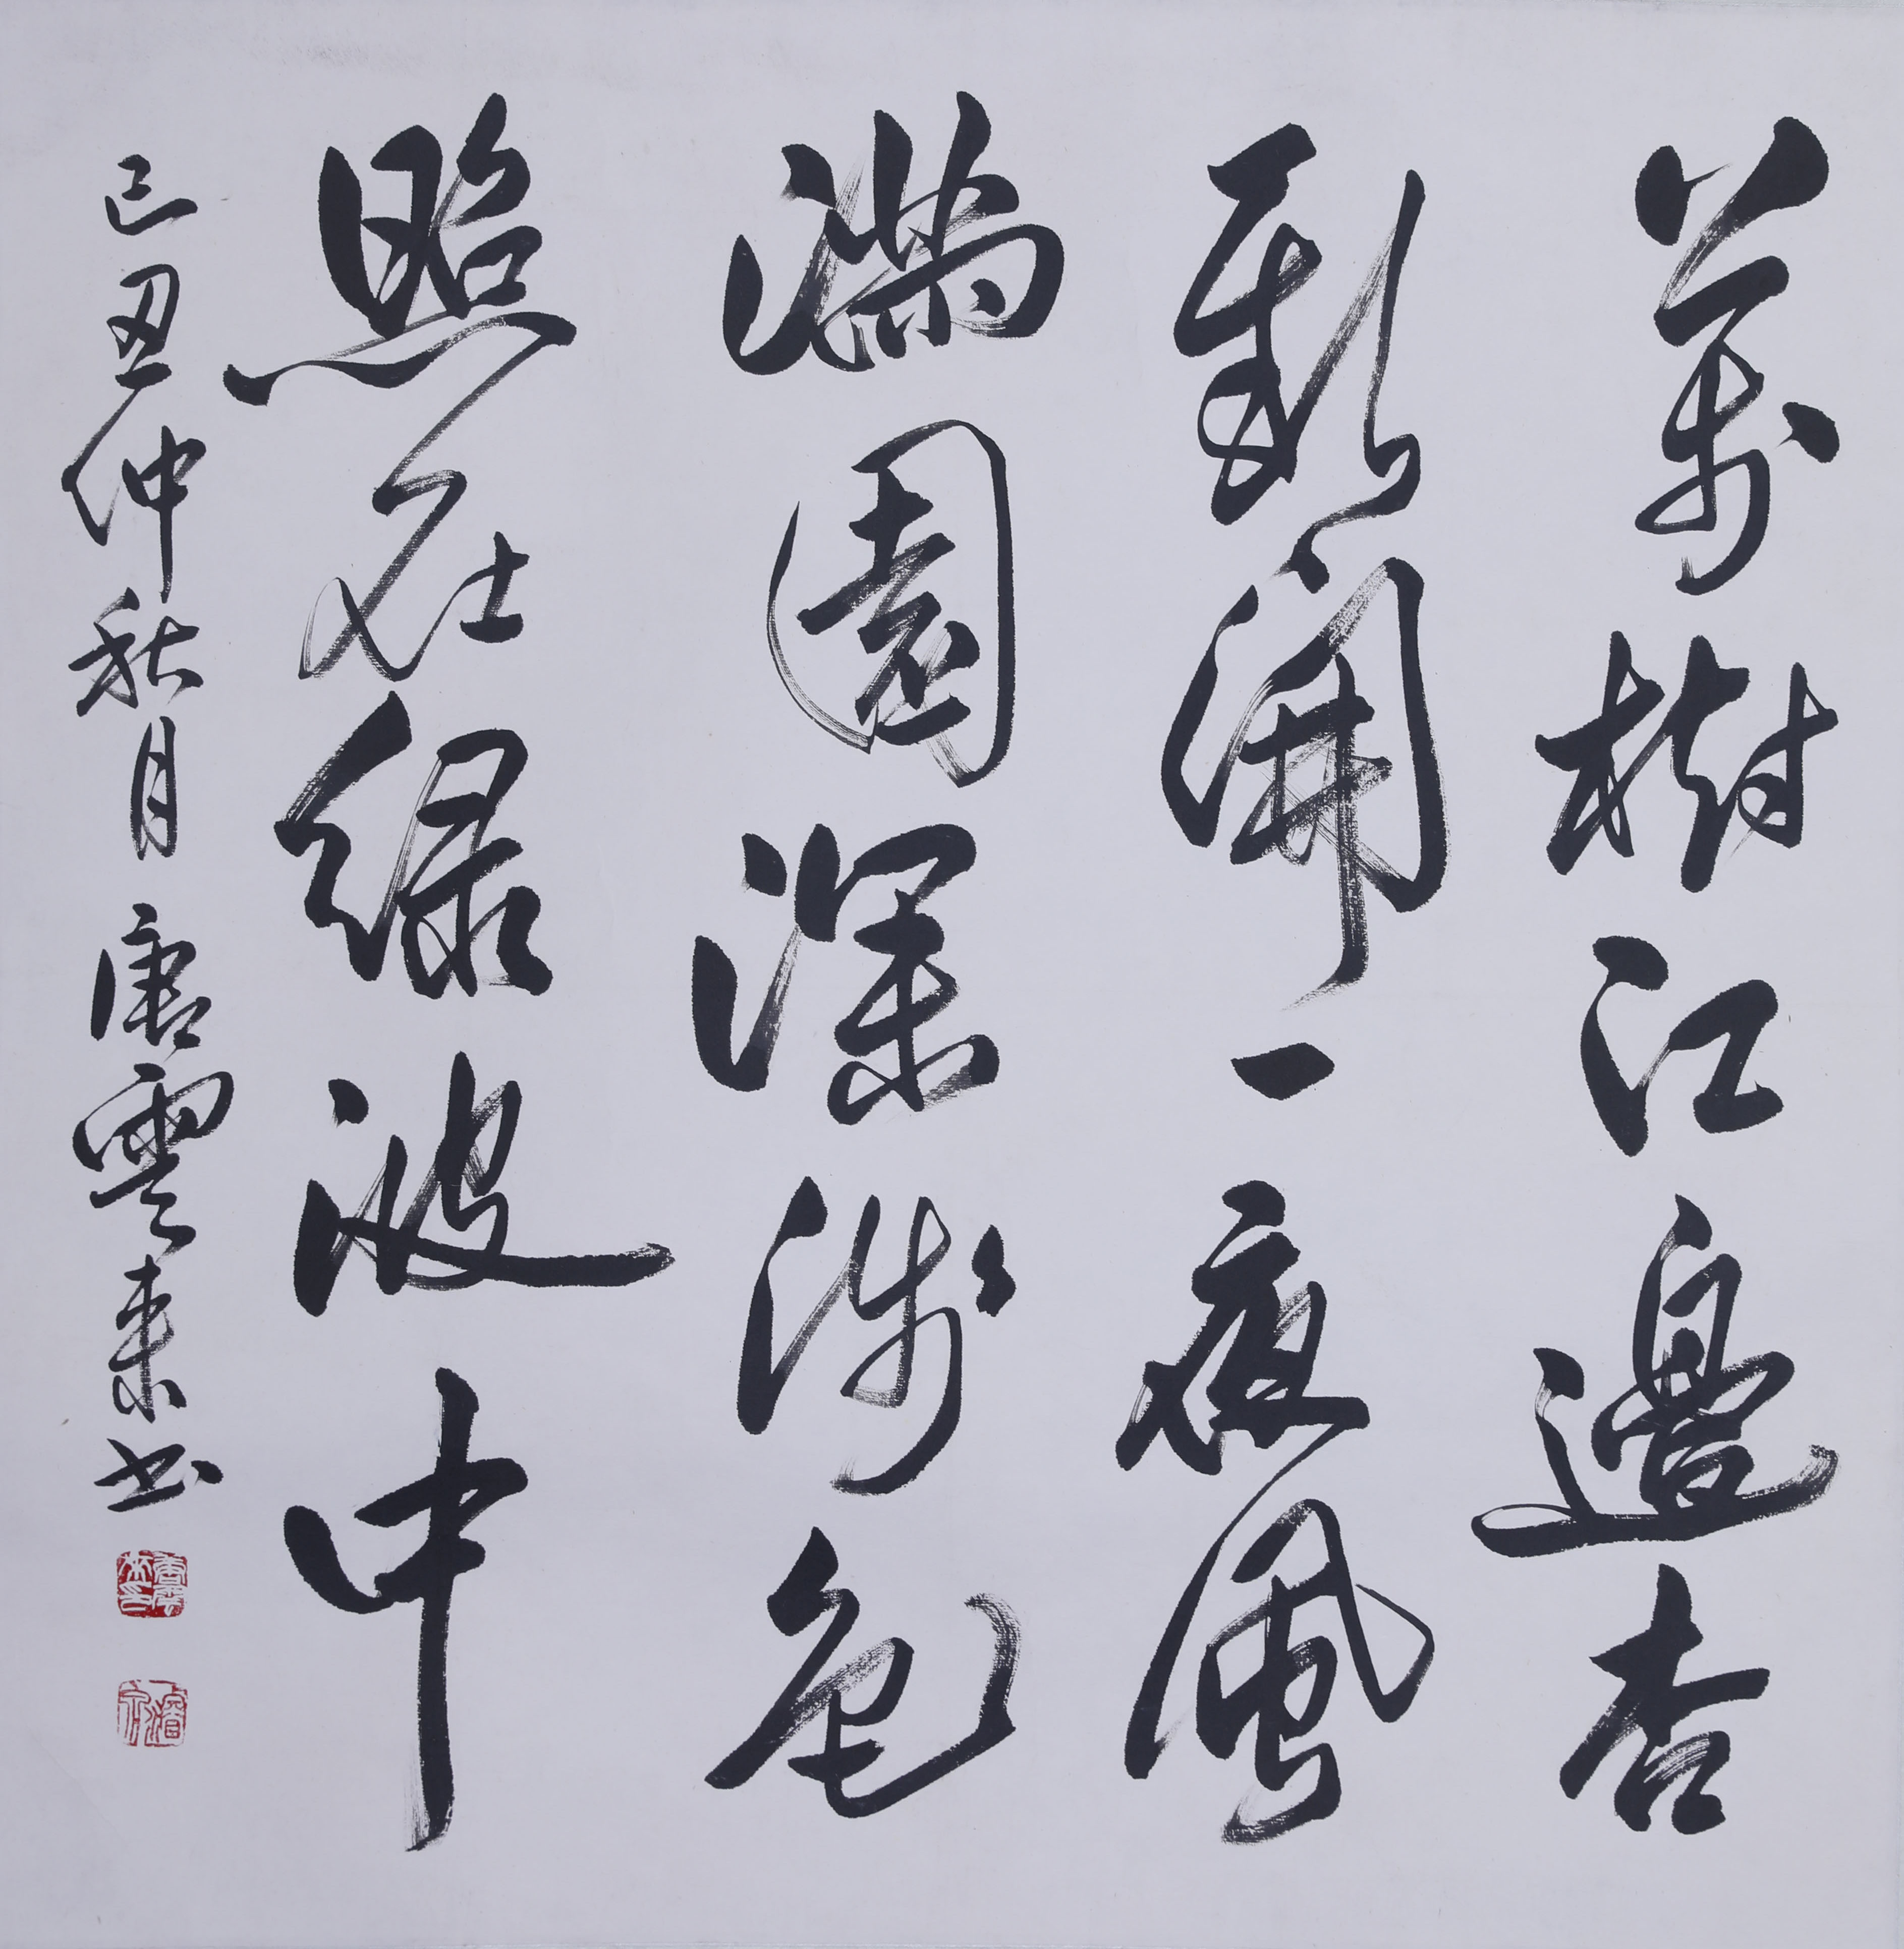 萬樹江邊杏
新開一夜風
滿園深淺色
照在綠波中
己丑仲秋月 唐雲来书